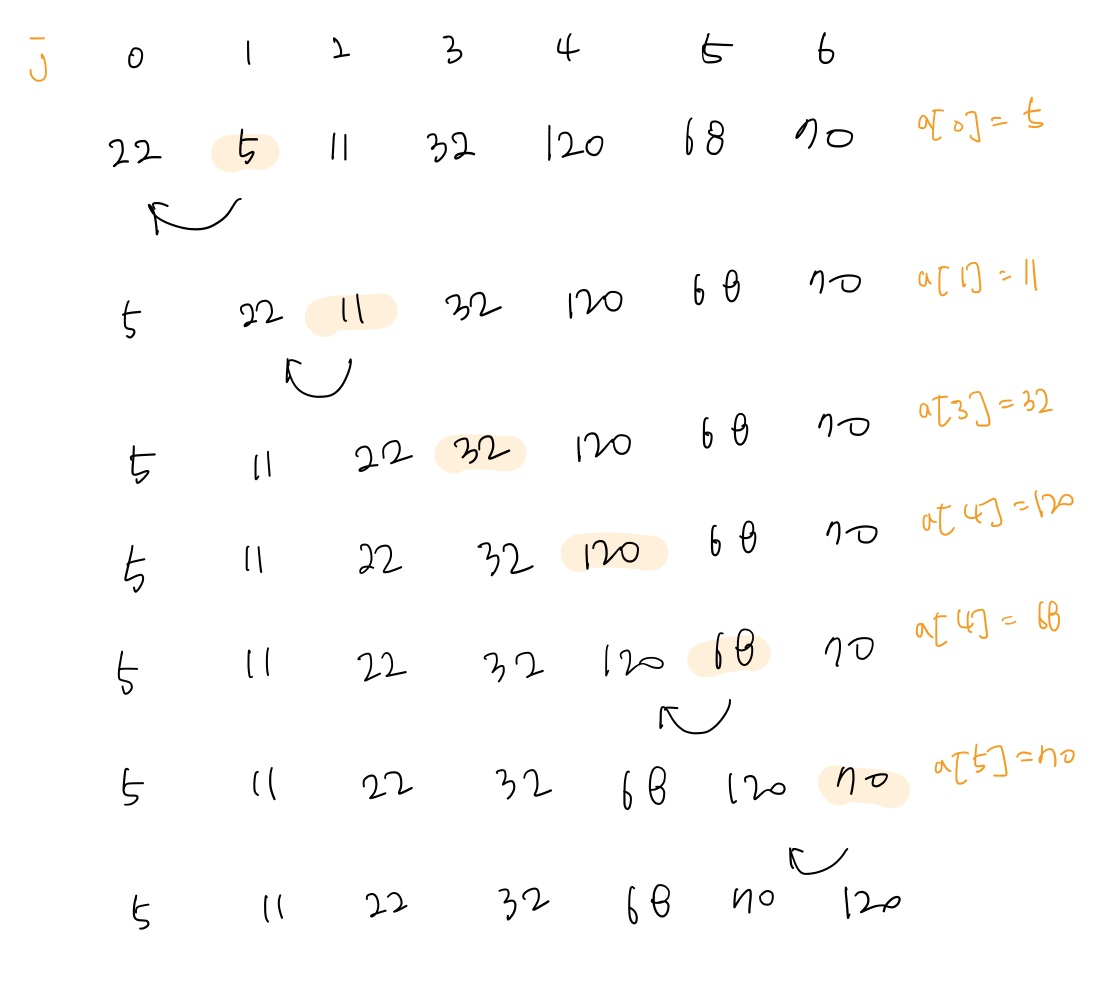 j 0 1 2 3 4 5 6
22 5 11 32 120 68 70 a[0] = 5
5 22 11 32 120 68 70 a[1] = 11
5 11 22 32 120 68 70 a[3] = 32
5 11 22 32 120 68 70 a[4] = 120
5 11 22 32 120 68 70 a[4] = 68
5 11 22 32 68 120 70 a[5] = 70
5 11 22 32 68 70 120